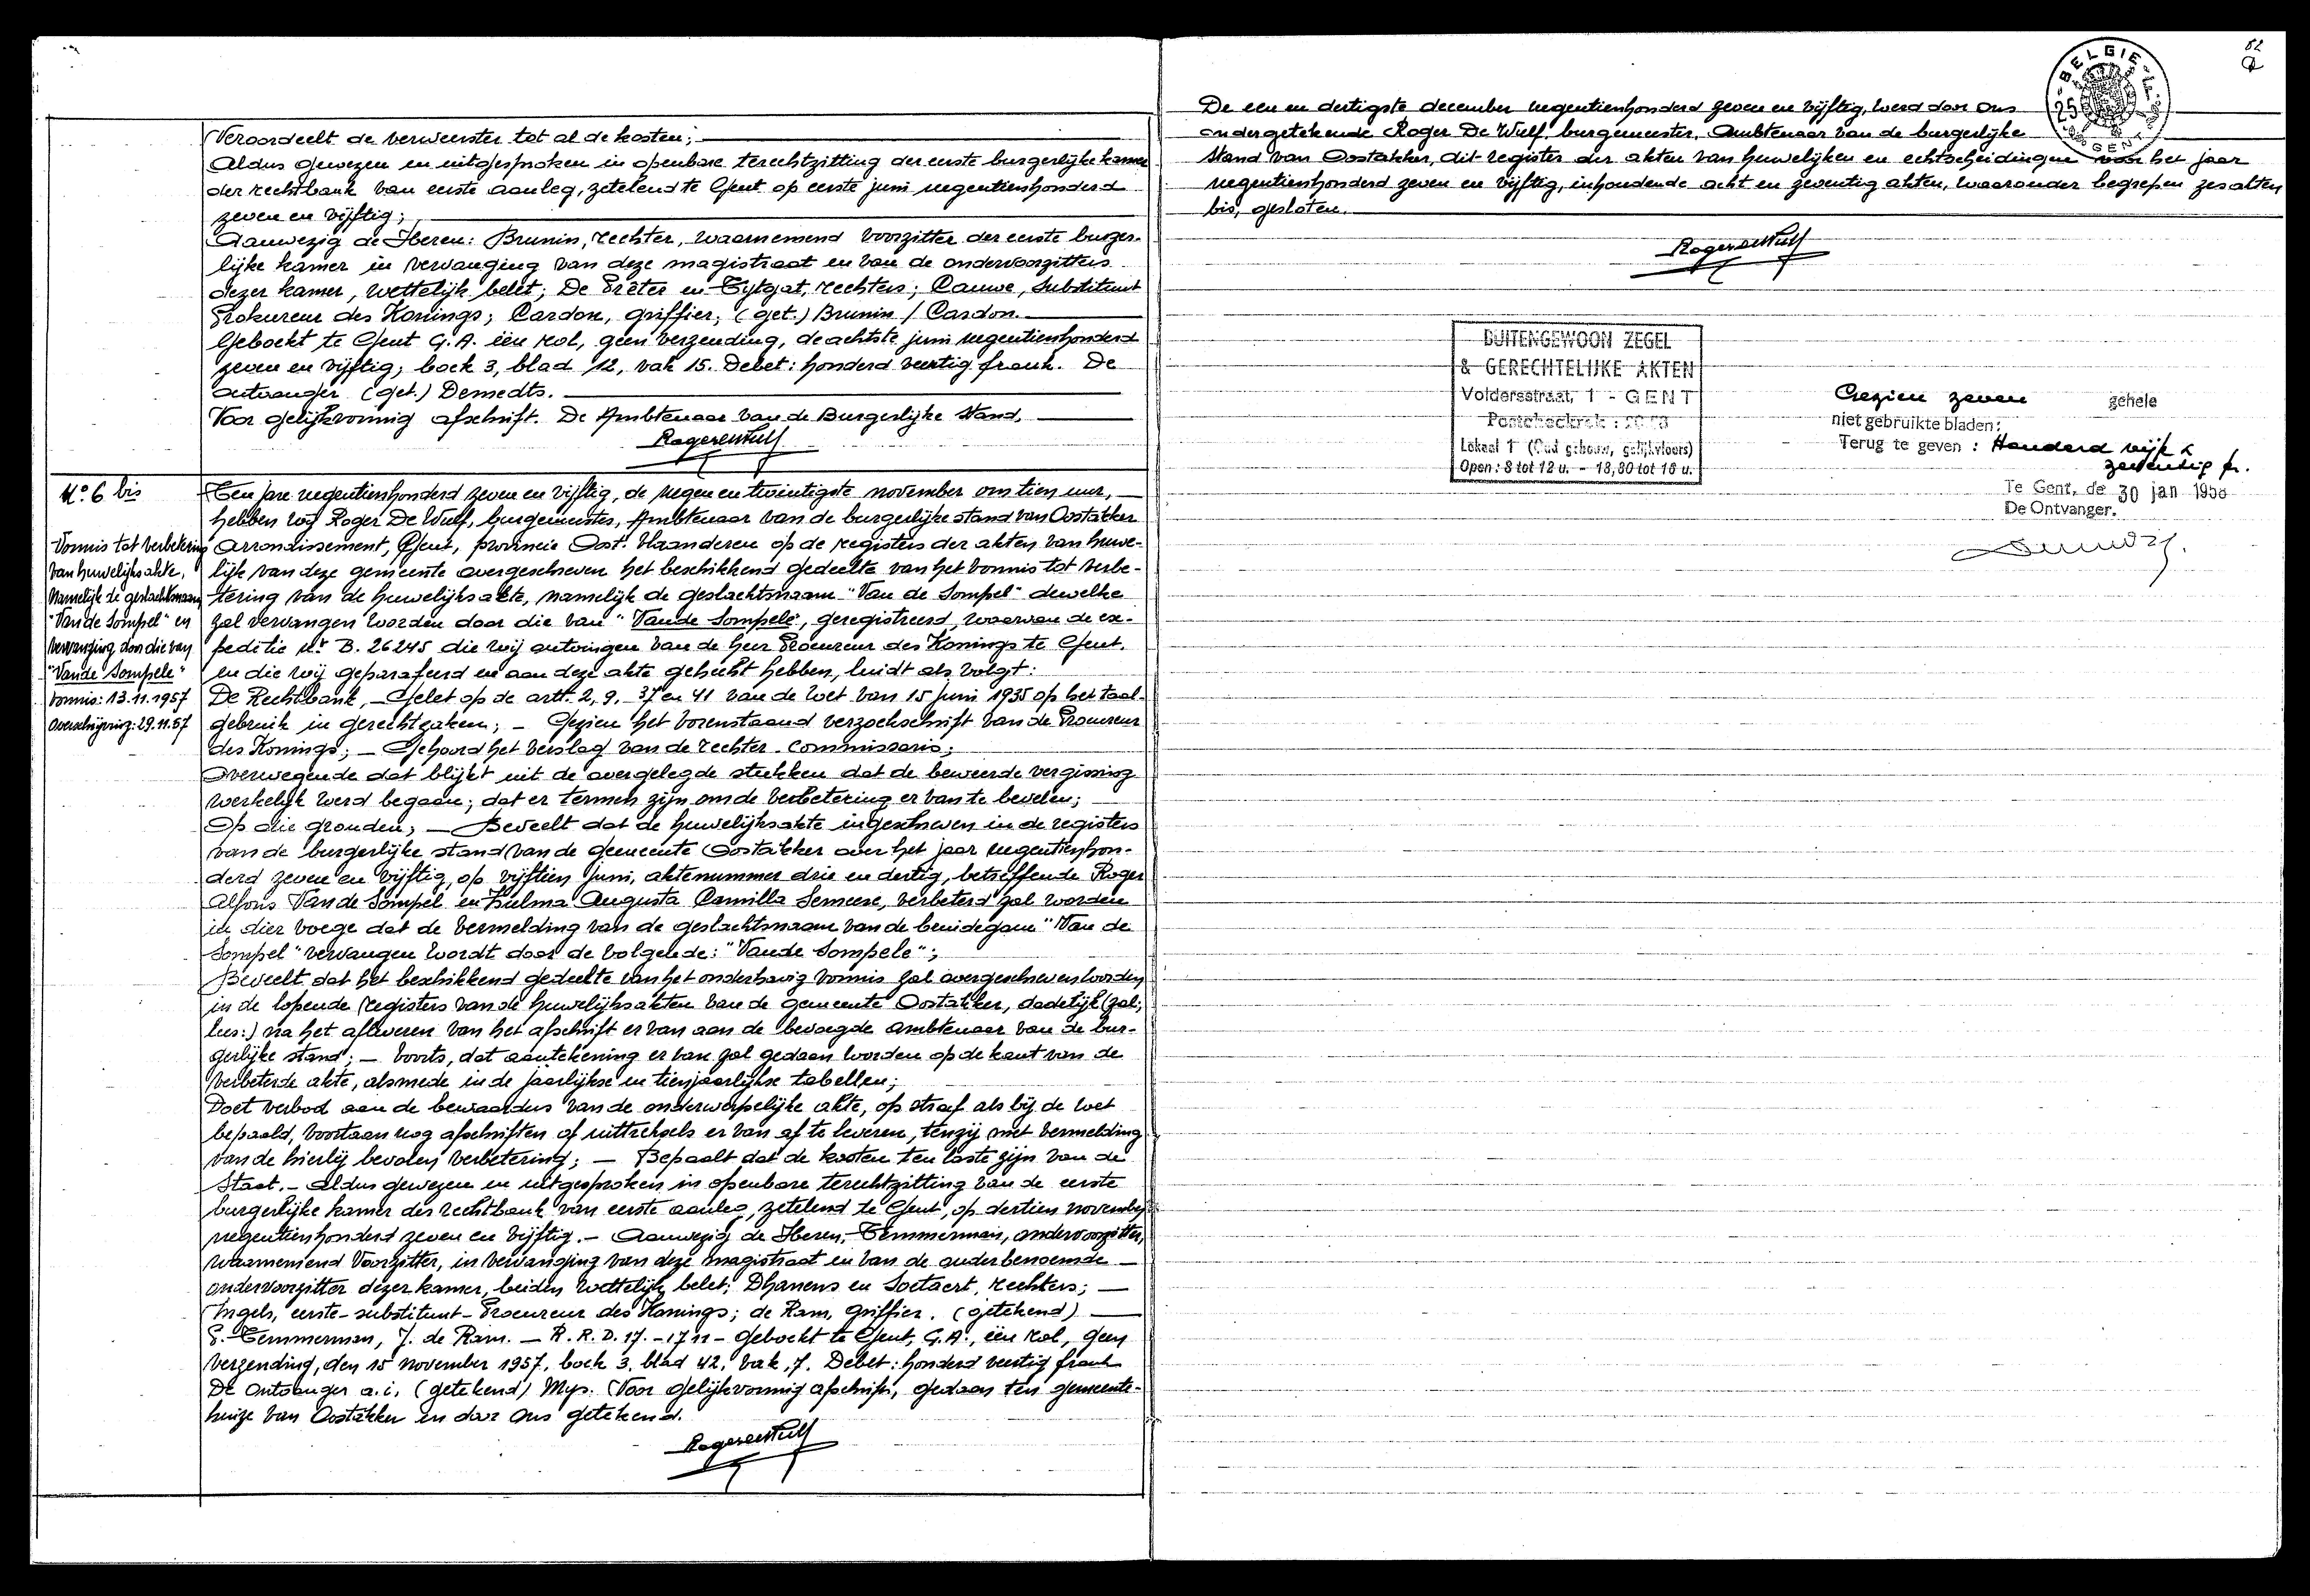 Veroordeelt de verweerster tot al de kosten;
Aldus gewezen en uitgesproken in openbare terechtzitting der eerste burgerlijke kamer
der rechtbank van eerste aanleg, zetelend te Gent op eerste juni negentienhonderd
zeven en vijftig;
Aanwezig de Heren: Brunin, rechter, waarnemend voorzitter der eerste burger-
lijke kamer in vervanging van deze magistraat en van de ondervoorzitters
dezer kamer, wettelijk belet; De Prêter en Tytgat, rechters; Cauwe, substituut
Prokureur des Konings; Cardon, griffier; (get.) Brunin / Cardon.
Geboekt te Gent G.A. één rol, geen verzending, de achtste juni negentienhonderd
zeven en vijftig; boek 3, blad 12, vak 15. Debet: honderd veertig frank. De
ontvanger (get.) Demedts.
Voor gelijkvormig afschrift. De Ambtenaar van de Burgerlijke Stand,
Roger De Wulf
No 6 bis
Vonnis tot verbetering
van huwelijksakte,
namelijk de geslachtsnaam
"Van de Sompel" en
vervanging door die van
"Vande Sompele"
Vonnis: 13.11.1957
Overschrijving: 29.11.57
Ten jare negentienhonderd zeven en vijftig, de negen en twintigste november om tien uur,
hebben wij Roger De Wulf, burgemeester, Ambtenaar van de burgerlijke stand van Oostakker
Arrondissement, Gent, provincie Oost-Vlaanderen op de registers der akten van huwe-
lijk van deze gemeente overgeschreven het beschikkend gedeelte van het vonnis tot verbe-
tering van de huwelijksakte, namelijk de geslachtsnaam "Van de Sompel" dewelke
zal vervangen worden door die van "Vande Sompele", geregistreerd, waarvan de ex-
peditie Nr B. 26245 die wij ontvingen van de heer Procureur des Konings te Gent.
en die wij geparafeerd en aan deze akte gehecht hebben, luidt als volgt:
De Rechtbank, - Gelet op de artt. 2, 9, 37 en 41 van de wet van 15 juni 1935 op het taal-
gebruik in gerechtzaken; - Gezien het vorenstaand verzoekschrift van de Procureur
des Konings; - Gehoord het verslag van de rechter-commissaris;
Overwegende dat blijkt uit de overgelegde stukken dat de beweerde vergissing
werkelijk werd begaan; dat er termen zijn om de verbetering er van te bevelen;
Op die gronden; - Beveelt dat de huwelijksakte ingeschreven in de registers
van de burgerlijke stand van de gemeente Oostakker over het jaar negentienhon-
derd zeven en vijftig, op vijftien juni, aktenummer drie en dertig, betreffende Roger
Alfons Van de Sompel en Zulma Augusta Camilla Semeese, verbeterd zal worden
in dier voege dat de vermelding van de geslachtsnaam van de bruidegom "Van de
Sompel" vervangen wordt door de volgende: "Vande Sompele";
Beveelt dat het beschikkend gedeelte van het onderhavig vonnis zal overgeschreven worden
in de lopende registers van de huwelijksakten van de gemeente Oostakker, dadelijk (zal;
lees:) na het afleveren van het afschrift er van aan de bevoegde ambtenaar van de bur-
gerlijke stand; - voorts, dat aantekening er van zal gedaan worden op de kant van de
verbeterde akte, alsmede in de jaarlijkse en tienjaarlijkse tabellen;
Doet verbod aan de bewaarders van de onderwerpelijke akte, op straf als bij de wet
bepaald, voortaan nog afschriften of uittreksels er van af te leveren, tenzij met vermelding
van de hierbij bevolen verbetering; - Bepaalt dat de kosten ten laste zijn van de
Staat. - Aldus gewezen en uitgesproken in openbare terechtzitting van de eerste
burgerlijke kamer der rechtbank van eerste aanleg, zetelend te Gent, op dertien november
negentienhonderd zeven en vijftig. - Aanwezig de Heren, Temmerman, ondervoorzitter,
waarnemend Voorzitter, in vervanging van deze magistraat en van de ouderbenoemde
ondervoorzitter dezer kamer, beiden wettelijk belet; Dhanens en Soetaert, rechters;
Ingels, eerste-substituut-Procureur des Konings; de Ram, griffier. (getekend)
G. Temmerman, J. de Ram. - R.R.D. 17. - 1711 - geboekt te Gent, G.A., één rol, geen
verzending, den 15 november 1957, boek 3, blad 42, vak, 7. Debet: honderd veertig frank
De Ontvanger a.i. (getekend) Mys. Voor gelijkvormig afschrift, gedaan ten gemeente-
huize van Oostakker en door ons getekend.
Roger De Wulf
82
BELGIE
25
GENT
De een en dertigste december negentienhonderd zeven en vijftig, werd door ons
ondergetekende Roger De Wulf, burgemeester, Ambtenaar van de burgerlijke
stand van Oostakker, dit register der akten van huwelijken en echtscheidingen voor het jaar
negentienhonderd zeven en vijftig, inhoudende acht en zeventig akten, waaronder begrepen zes akten
bis, gesloten.
Roger De Wulf
BUITENGEWOON ZEGEL
& GERECHTELIJKE AKTEN
Voldersstraat, 1 - GENT
Lokaal 1 (Oud gebouw, gelijkvloers)
Open: 8 tot 12 u. - 13,30 tot 16 u.
Gezien zeven gehele
niet gebruikte bladen:
Terug te geven: Honderd vijf &
zeventig fr.
Te Gent, de 30 jan 1958
De Ontvanger.